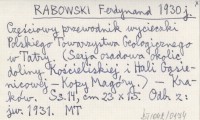 RABOWSKI Ferdynand 1930 j.
Częściowy przewodnik wycieczki
Polskiego Towarzystwa Geologicznego
w Tatry. (Serja osadowa okolic
doliny Kościeliskiej i Hali Gąsie-
nicowej - Kopy Magóry. - Kra-
ków. S. 3.14, cm 23 x 15. Odb. z:
1931. MT